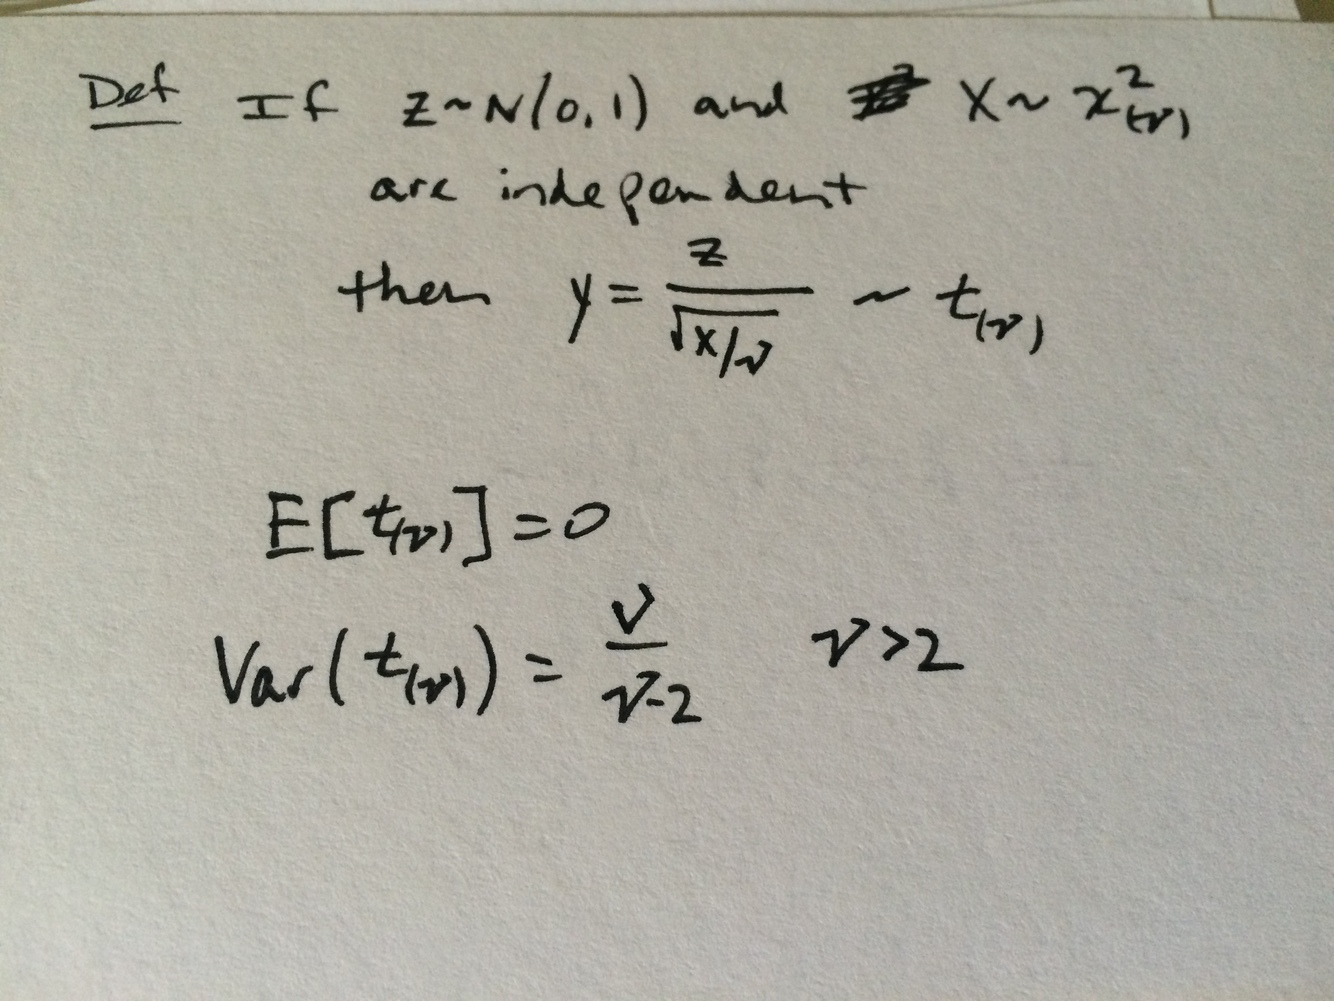 Def If z ~ N(0,1) and X ~ χ²(ν)
are independent
then y = z / √(X/ν) ~ t(ν)
E[t(ν)] = 0
Var(t(ν)) = ν / (ν-2) ν > 2